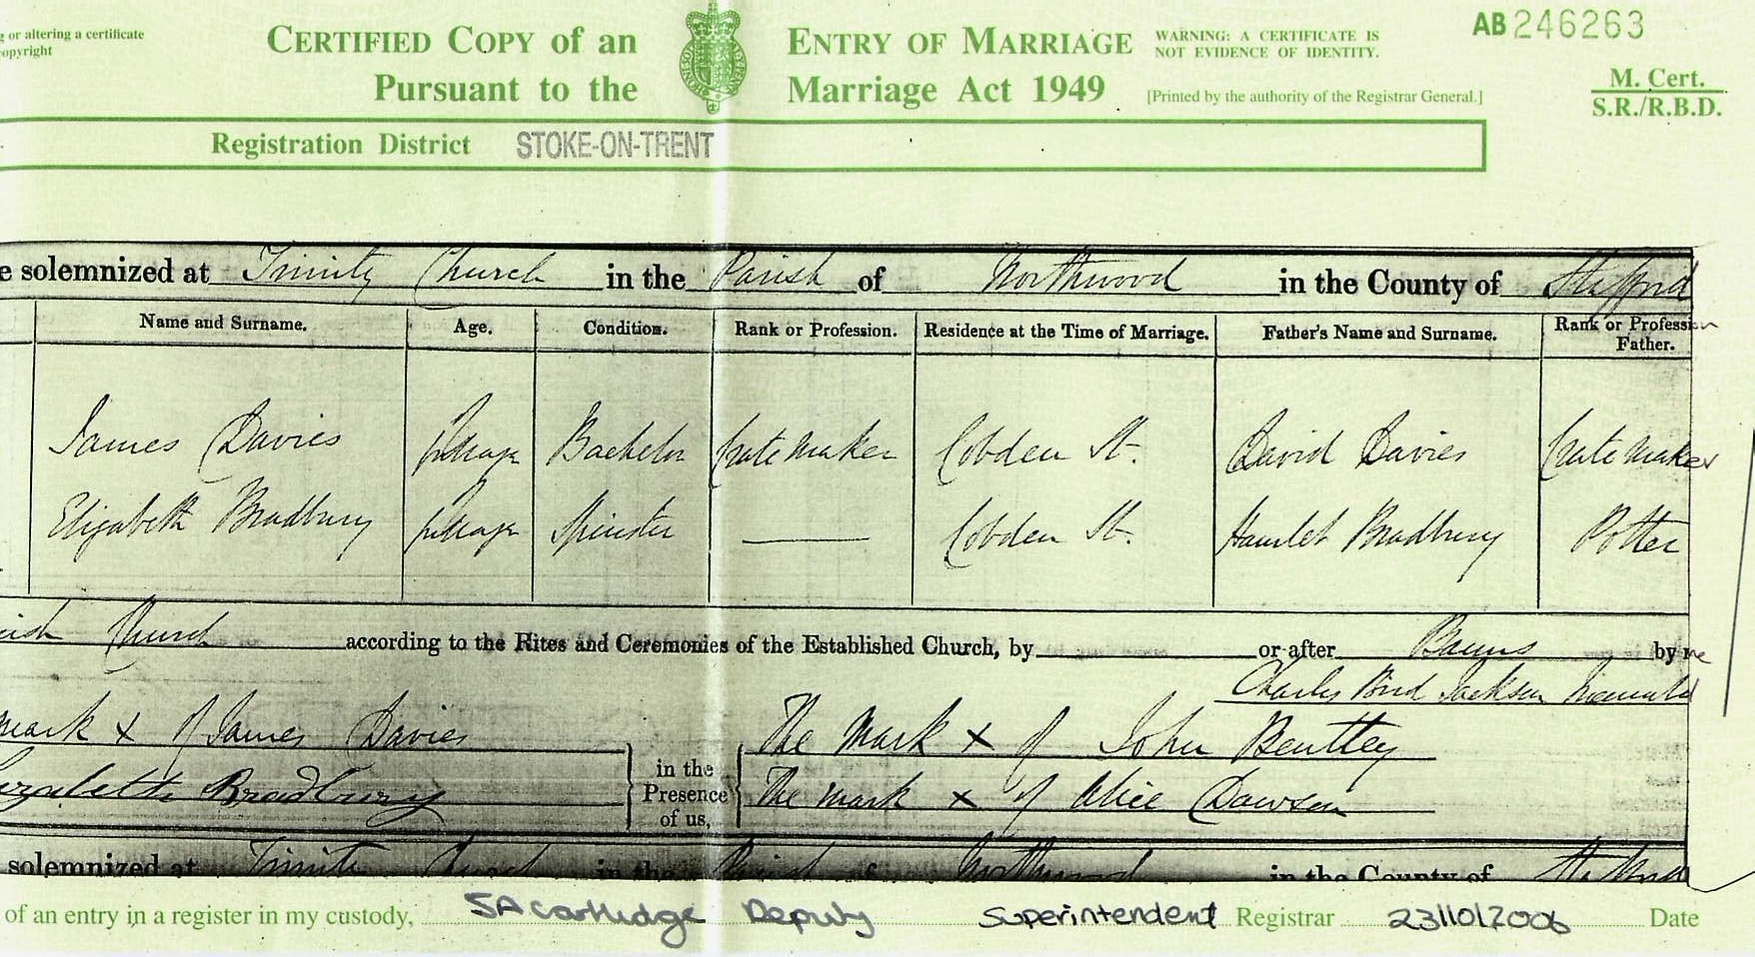 g or altering a certificate
opyright
CERTIFIED COPY of an ENTRY OF MARRIAGE
Pursuant to the Marriage Act 1949
WARNING: A CERTIFICATE IS
NOT EVIDENCE OF IDENTITY.
[Printed by the authority of the Registrar General.]
AB 246263
M. Cert.
S.R./R.B.D.
Registration District STOKE-ON-TRENT
e solemnized at Trinity Church in the Parish of Northwood in the County of Stafford
Name and Surname. Age. Condition. Rank or Profession. Residence at the Time of Marriage. Father's Name and Surname. Rank or Profession
Father.
James Davies full age Bachelor Crate maker Cobden St. David Davies Crate maker
Elizabeth Bradbury full age Spinster Cobden St. Hamlet Bradbury Potter
ish Church according to the Rites and Ceremonies of the Established Church, by or after Banns by me
Charles Bird Jackson
mark x of James Davies The Mark x of John Bentley
in the
Presence
of us,
izabeth Bradbury The mark x of Alice Dawson
solemnized at Trinity Church in the Parish of Northwood in the County of Stafford
of an entry in a register in my custody, SA Cartlidge Deputy Superintendent Registrar 23/10/2006 Date